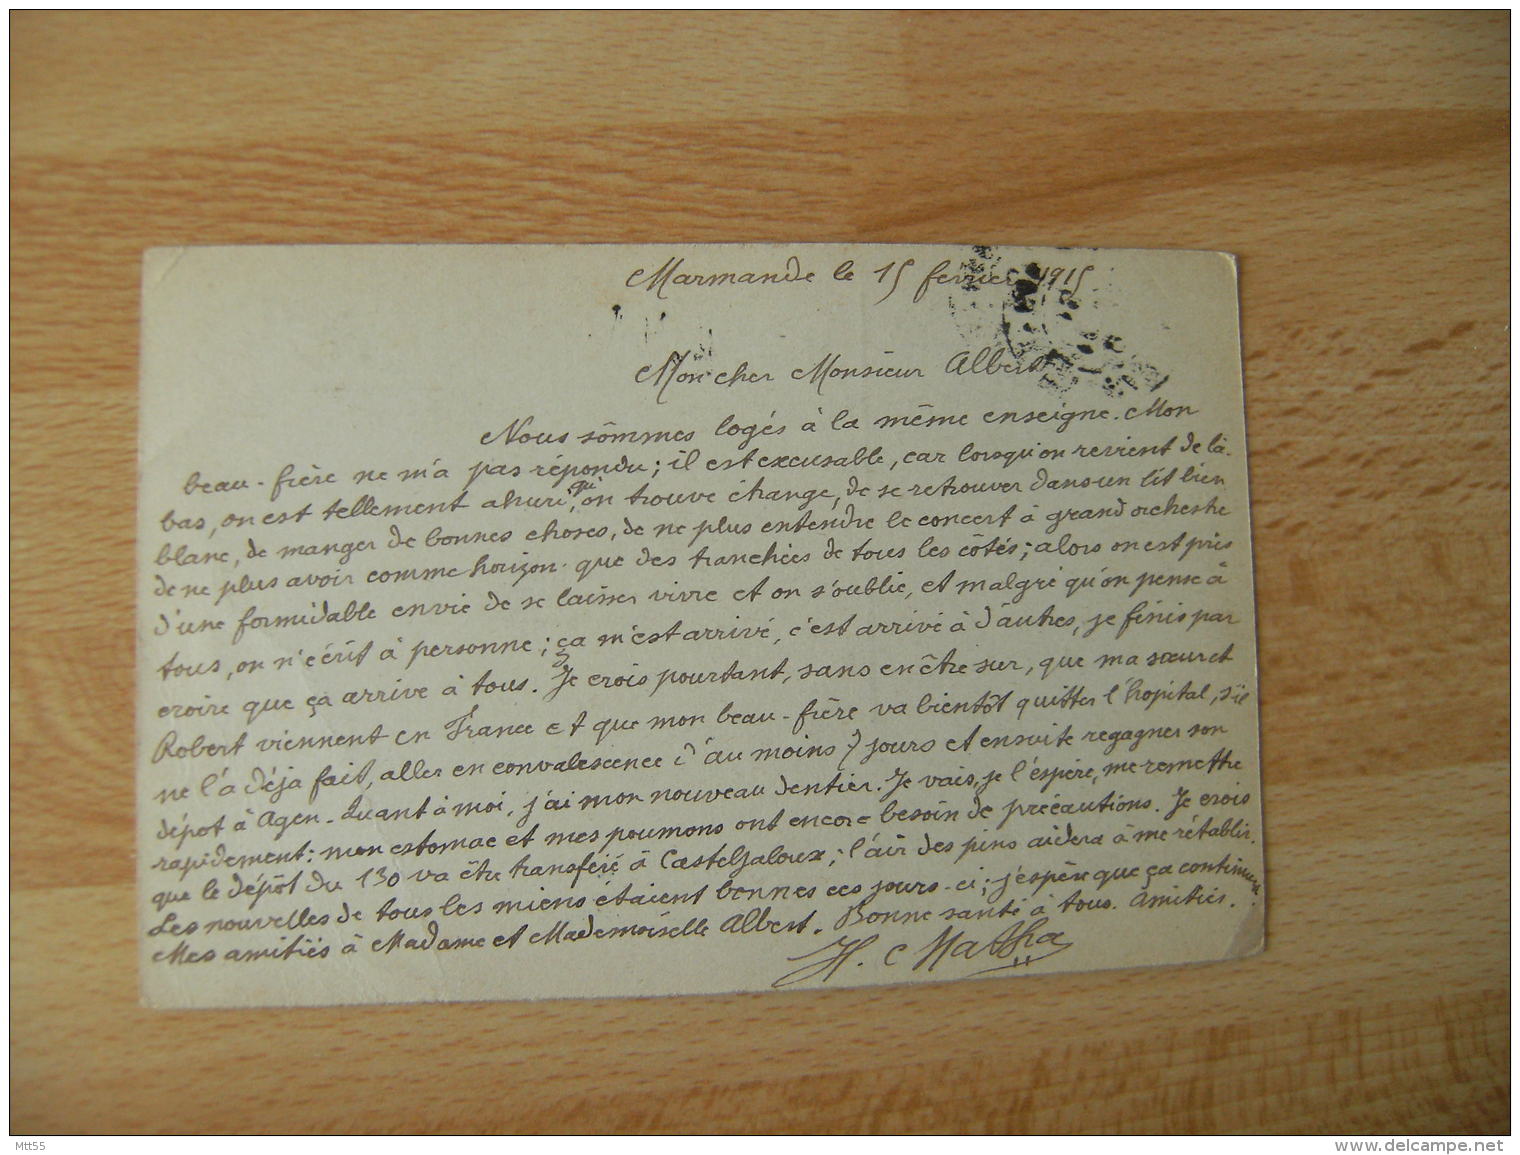 Marmande le 15 février 1915
Mon cher Monsieur Albert
Nous sommes logés à la même enseigne. Mon
beau-frère ne m'a pas répondu ; il est excusable, car lorsqu'on revient de là-
bas, on est tellement ahuri, qu'on trouve étrange, de se retrouver dans un lit bien
blanc, de manger de bonnes choses, de ne plus entendre le concert à grand orchestre
de ne plus avoir comme horizon que des tranchées de tous les côtés ; alors on est pris
d'une formidable envie de se laisser vivre et on s'oublie, et malgré qu'on pense à
tous, on n'écrit à personne ; ça m'est arrivé, c'est arrivé à d'autres, je finis par
croire que ça arrive à tous. Je crois pourtant, sans en être sur, que ma sœur et
Robert viennent en France et que mon beau-frère va bientôt quitter l'hopital, s'il
ne l'a déja fait, aller en convalescence d'au moins 7 jours et ensuite regagner son
dépot à Agen. Quant à moi, j'ai mon nouveau dentier. Je vais, je l'espère, me remettre
rapidement : mon estomac et mes poumons ont encore besoin de précautions. Je crois
que le dépôt du 130 va être transféré à Casteljaloux ; l'air des pins aidera à me rétablir.
Les nouvelles de tous les miens étaient bonnes ces jours-ci ; j'espère que ça continuera.
Mes amitiés à Madame et Mademoiselle Albert. Bonne santé à tous. Amitiés.
H. Matha
Mtt55
www.delcampe.net